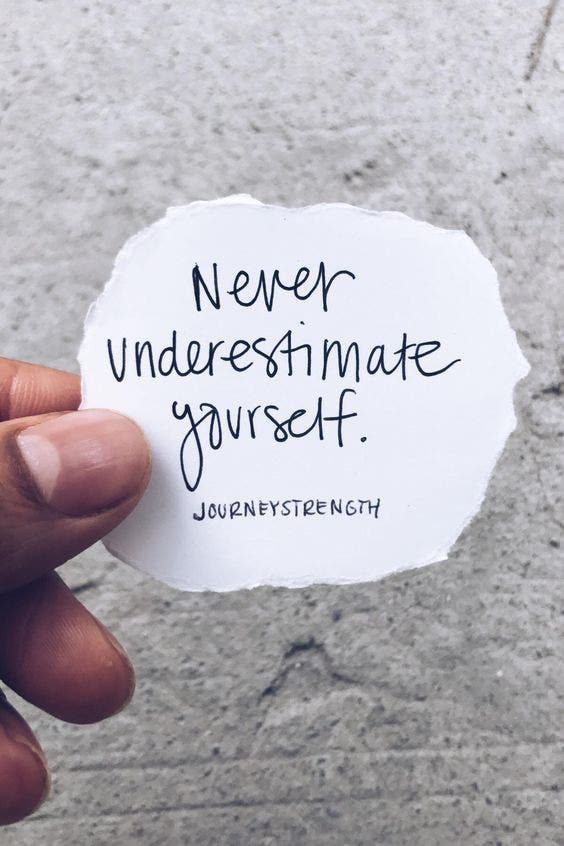 Never
underestimate
yourself.
JOURNEYSTRENGTH